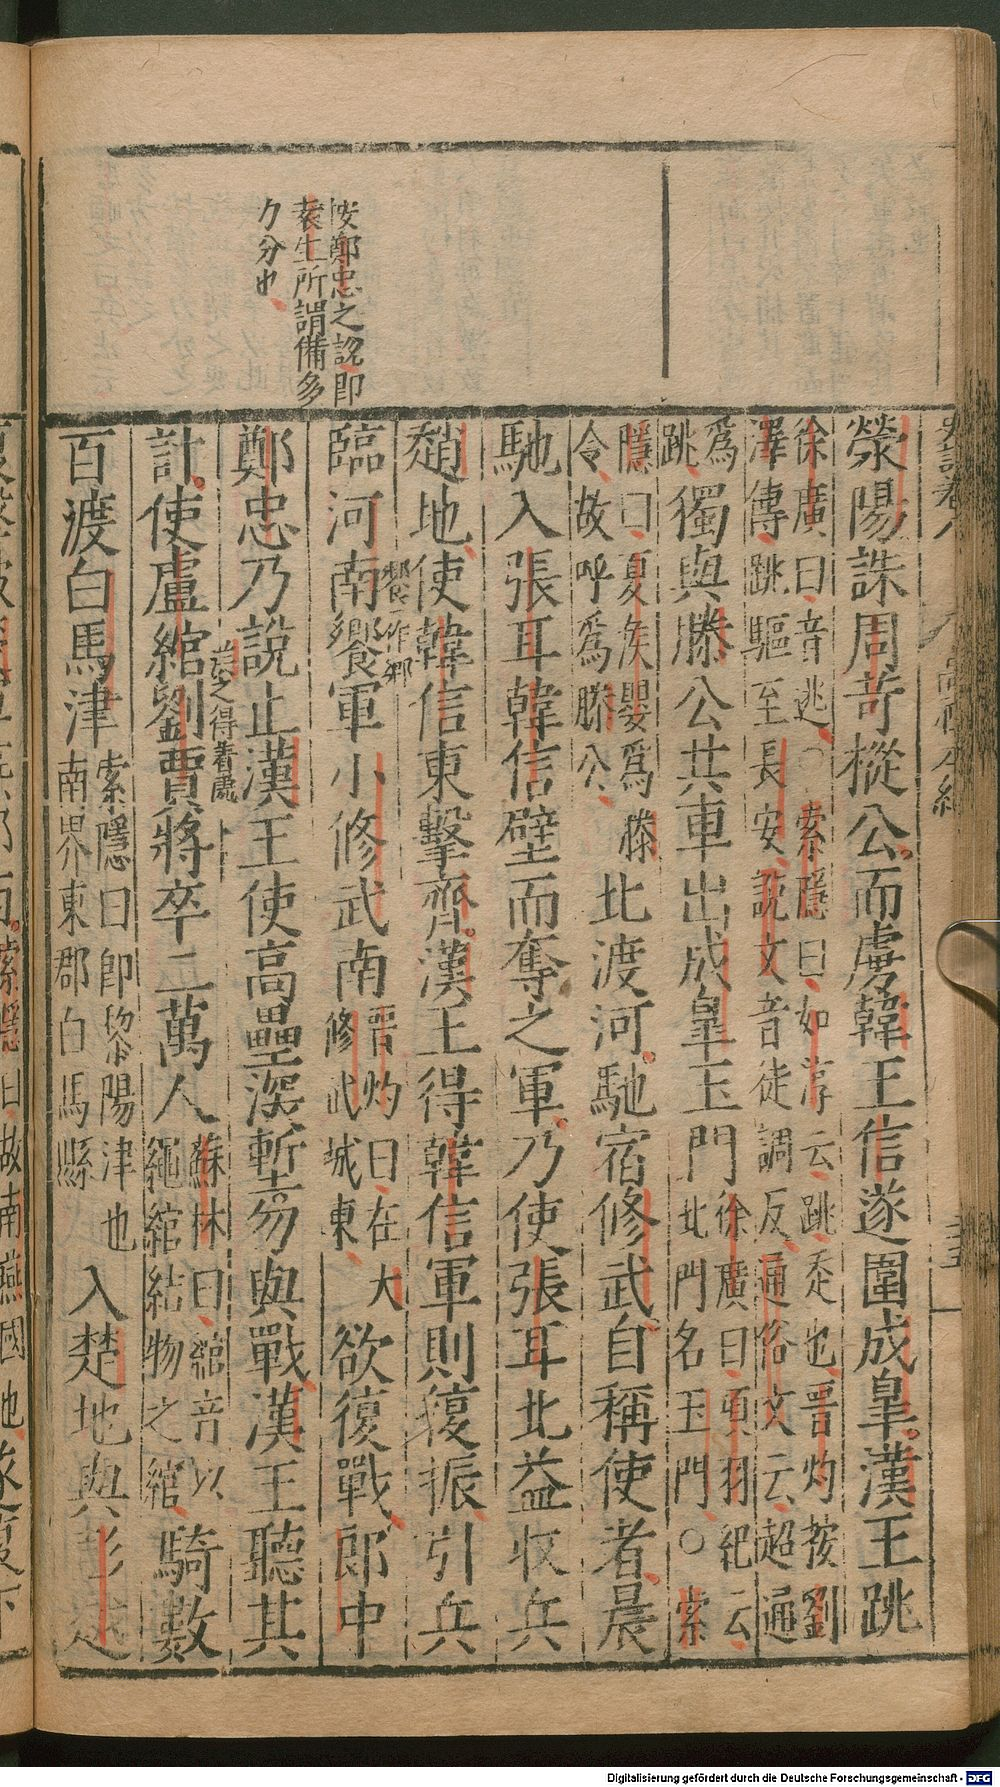 史記卷八 高帝本紀
滎陽誅周苛樅公而虜韓王信遂圍成皇漢王跳
徐廣曰音逃○索隱曰如淳云跳走也晋灼按劉
澤傳跳驅至長安說文音徒調反通俗文云超通
爲
跳獨與滕公共車出成皇玉門徐廣曰項羽紀云
北門名玉門○索
隱曰夏矦嬰爲滕
令故呼爲滕公北渡河馳宿修武自稱使者晨
馳入張耳韓信壁而奪之軍乃使張耳北益收兵
趙地使韓信東擊齊漢王得韓信軍則復振引兵
饗一作鄉
臨河南饗軍小修武南晋灼曰在大
修武城東欲復戰郎中
鄭忠乃說止漢王使高壘深塹勿與戰漢王聽其
計使盧綰劉賈將卒二萬人蘇林曰綰音以
繩綰結物之綰騎數
百渡白馬津索隱曰卽黎陽津也
南界東郡白馬縣入楚地與彭越
按鄭忠之說即
袁生所謂備多
力分也
Digitalisierung gefördert durch die Deutsche Forschungsgemeinschaft - DFG